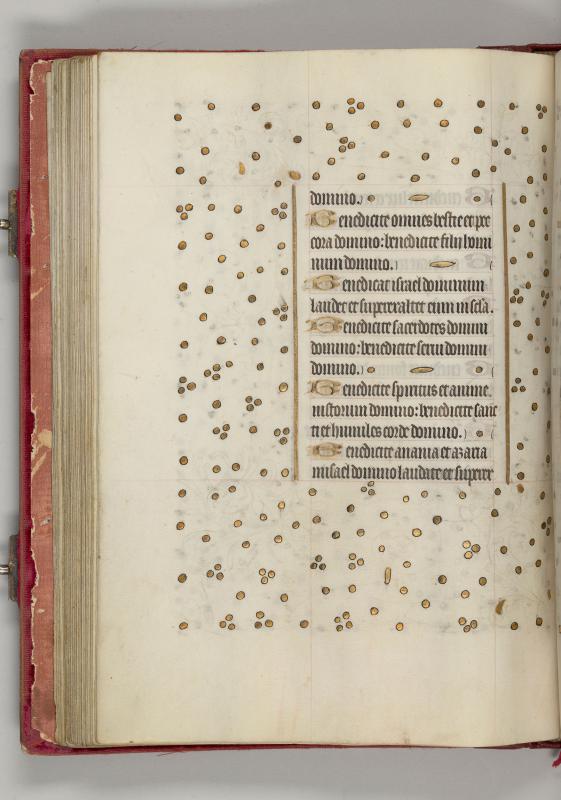 domino.
Benedicite omnes bestie et pe
cora domino: benedicite filii homi
num domino.
Benedicat israel dominum
laudet et superexaltet eum in secla.
Benedicite sacerdotes domini
domino: benedicite serui domini
domino.
Benedicite spiritus et anime
iustorum domino: benedicite sanc
ti et humiles corde domino.
Benedicite anania et azaria
misael domino laudate et supere